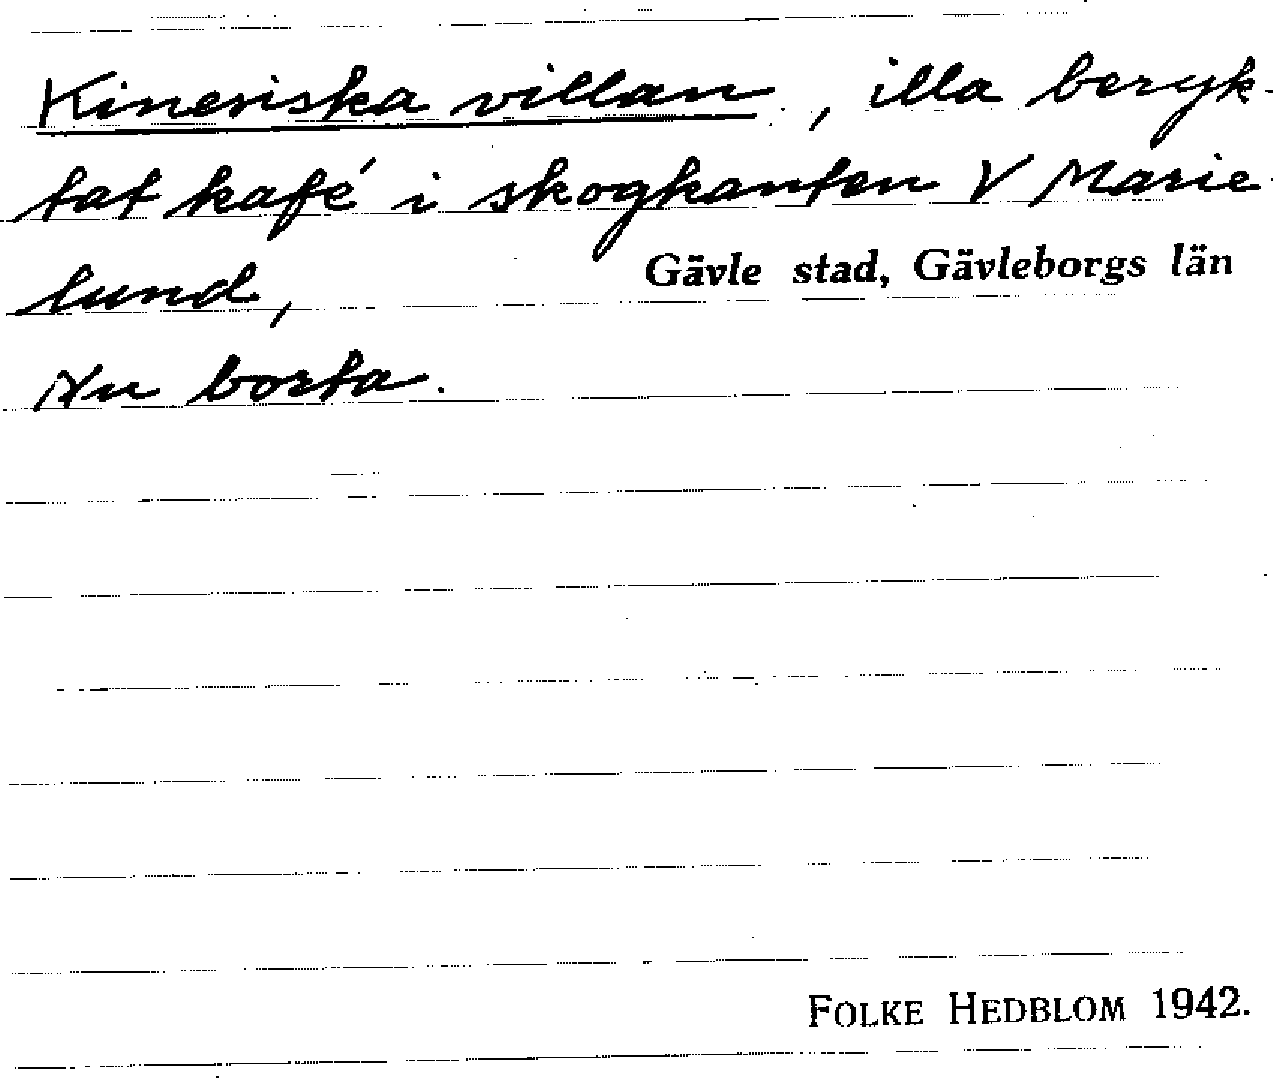 Kinesiska villan, illa beryk-
tat kafé i skogkanten V Marie-
lund,
Gävle stad, Gävleborgs län
Nu borta.
FOLKE HEDBLOM 1942.